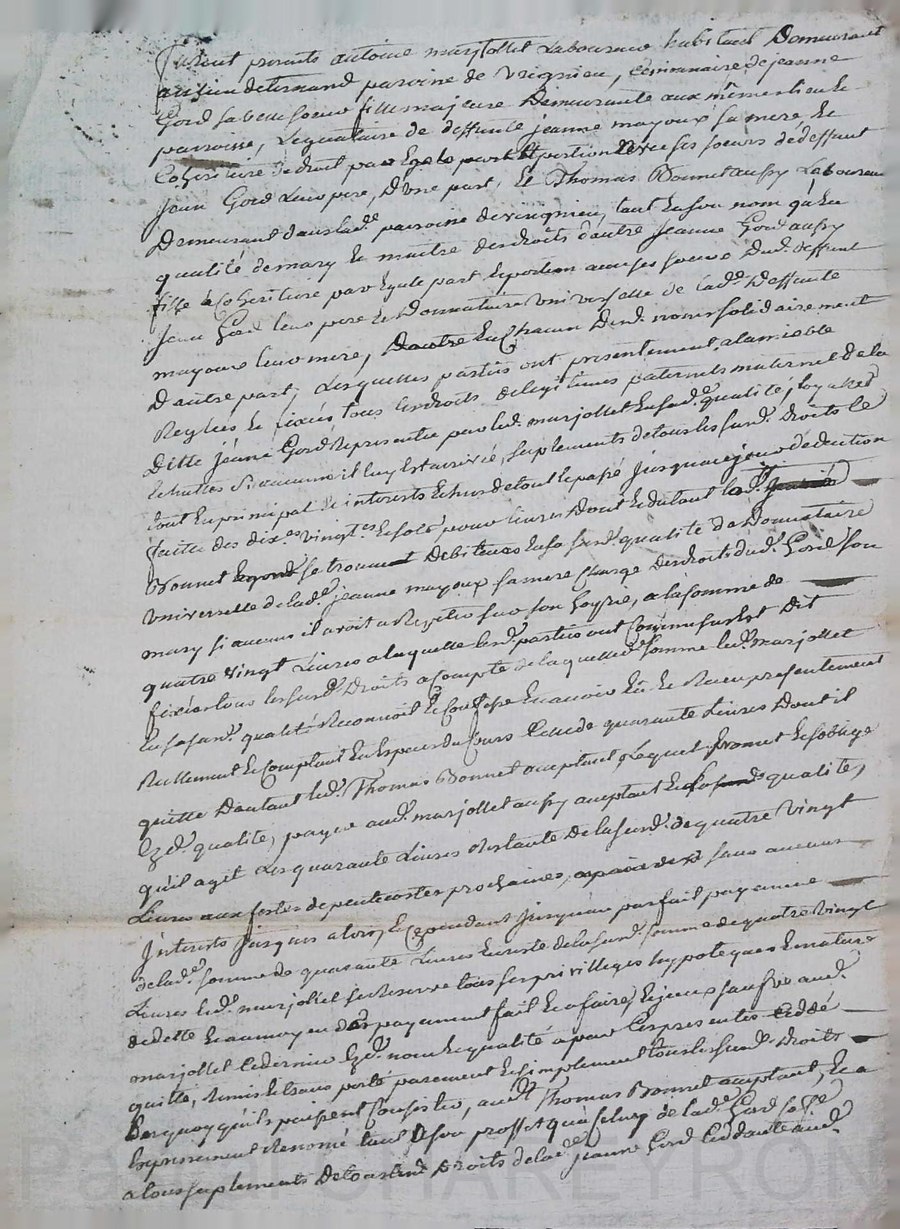 furent presents antoine marjollet Laboureur habitant Demeurant
paroisse de vrignieu, Commissaire de jeanne
Gord sa belle soeur fille majeure Demeurante aux même lieu et
parroisse, Legataire de deffunte jeanne mayoux sa mere et
Coheritiere de droit par Egale part et portion avec ses soeurs de deffunt
jean Gord leur pere, D'une part, Et Thomas Bonnet aussy Laboureur
Demeurant dans lad.e paroisse de vrignieu, tant en son nom qu'en
qualité de mary et maitre des droits d'autre jeanne Gord aussy
fille & Coheritiere par Egale part et portion avec ses soeurs Dud. deffunt
jean Gord leur pere et Donnataire Universelle de lad.e Deffunte
mayoux leur mere, D'autre En Chacun Desd. noms solidairement
D'autre part, Lesquelles parties ont presentement alamiable
Reglées et fixées tous les droits de legitimes paternels maternel de la
Ditte jeanne Gord Representée par led. marjollet En sad.e qualité,
Echuttes si aucune il luy Est arrivé, supléments de tous les susd. Droits le
tout En principal et interests Echus de tout le passé jusqu'à ce jour déduction
faitte des dix.es vingt.es et sols pour livres Dont et dutant led.
Bonnet se trouvent Debiteurs En sa susd. qualité de Donnataire
Universelle de lad.e jeanne mayoux sa mere Charge des droits dud. Gord son
mary si aucuns il avoit a Repeter sur son hoyrie, a la somme de
quatre vingt Livres a laquelle lesd. parties ont Comme sus Est Dit
fixées tous les susd. Droits a Compte de laquelle somme led. marjollet
En sa susd. qualité Reconnoit Et Confesse En avoir Eü et Receu presentement
Reellement et Comptant En Espece du Cours Celle de quarante Livres Dont il
quitte Dautant led. Thomas Bonnet acceptant, Lequel Bonnet et s'oblige
Ezd. qualité, payer aud. marjollet aussy acceptant En sad. qualité,
qu'il agit Les quarante Livres Restante De la susd. de quatre vingt
Livres aux festes de pentecostes prochaines, sans aucuns
Interests jusques alors, Et Cependant jusqu'au parfait payement
de lad.e somme de quarante Livres En reste de la susd. somme de quatre vingt
Livres led. marjollet se Reserve tous ses privilleges hypoteques Et nature
de dette Et au moyen du payement fait Et a faire, Lejeux sauf Ire aud.
marjollet Ce dernier Ezd. noms Et qualité a par Ces presentes Ceddé
quitté, Remis Et sans porté purement et simplement tous les susd. Droits
En quoy qu'ils puissent Consister, aud. Thomas Bonnet acceptant, Et a
Expressement Renoncé tant a son proffit qu'a Celuy de lad.e Gord sa f.e
a tous supléments De tous les d. Droits de lad.e jeanne Gord Ceddante aud.
Pascal CHAREYRON